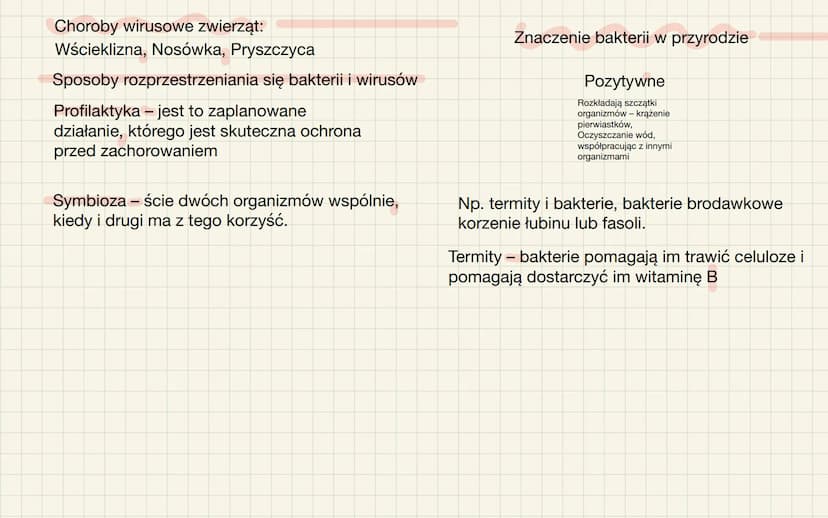 Choroby wirusowe zwierząt:
Wścieklizna, Nosówka, Pryszczyca
Sposoby rozprzestrzeniania się bakterii i wirusów
Profilaktyka – jest to zaplanowane
działanie, którego jest skuteczna ochrona
przed zachorowaniem
Symbioza – ście dwóch organizmów wspólnie,
kiedy i drugi ma z tego korzyść.
Znaczenie bakterii w przyrodzie
Pozytywne
Rozkładają szczątki
organizmów – krążenie
pierwiastków,
Oczyszczanie wód,
współpracując z innymi
organizmami
Np. termity i bakterie, bakterie brodawkowe
korzenie łubinu lub fasoli.
Termity – bakterie pomagają im trawić celuloze i
pomagają dostarczyć im witaminę B